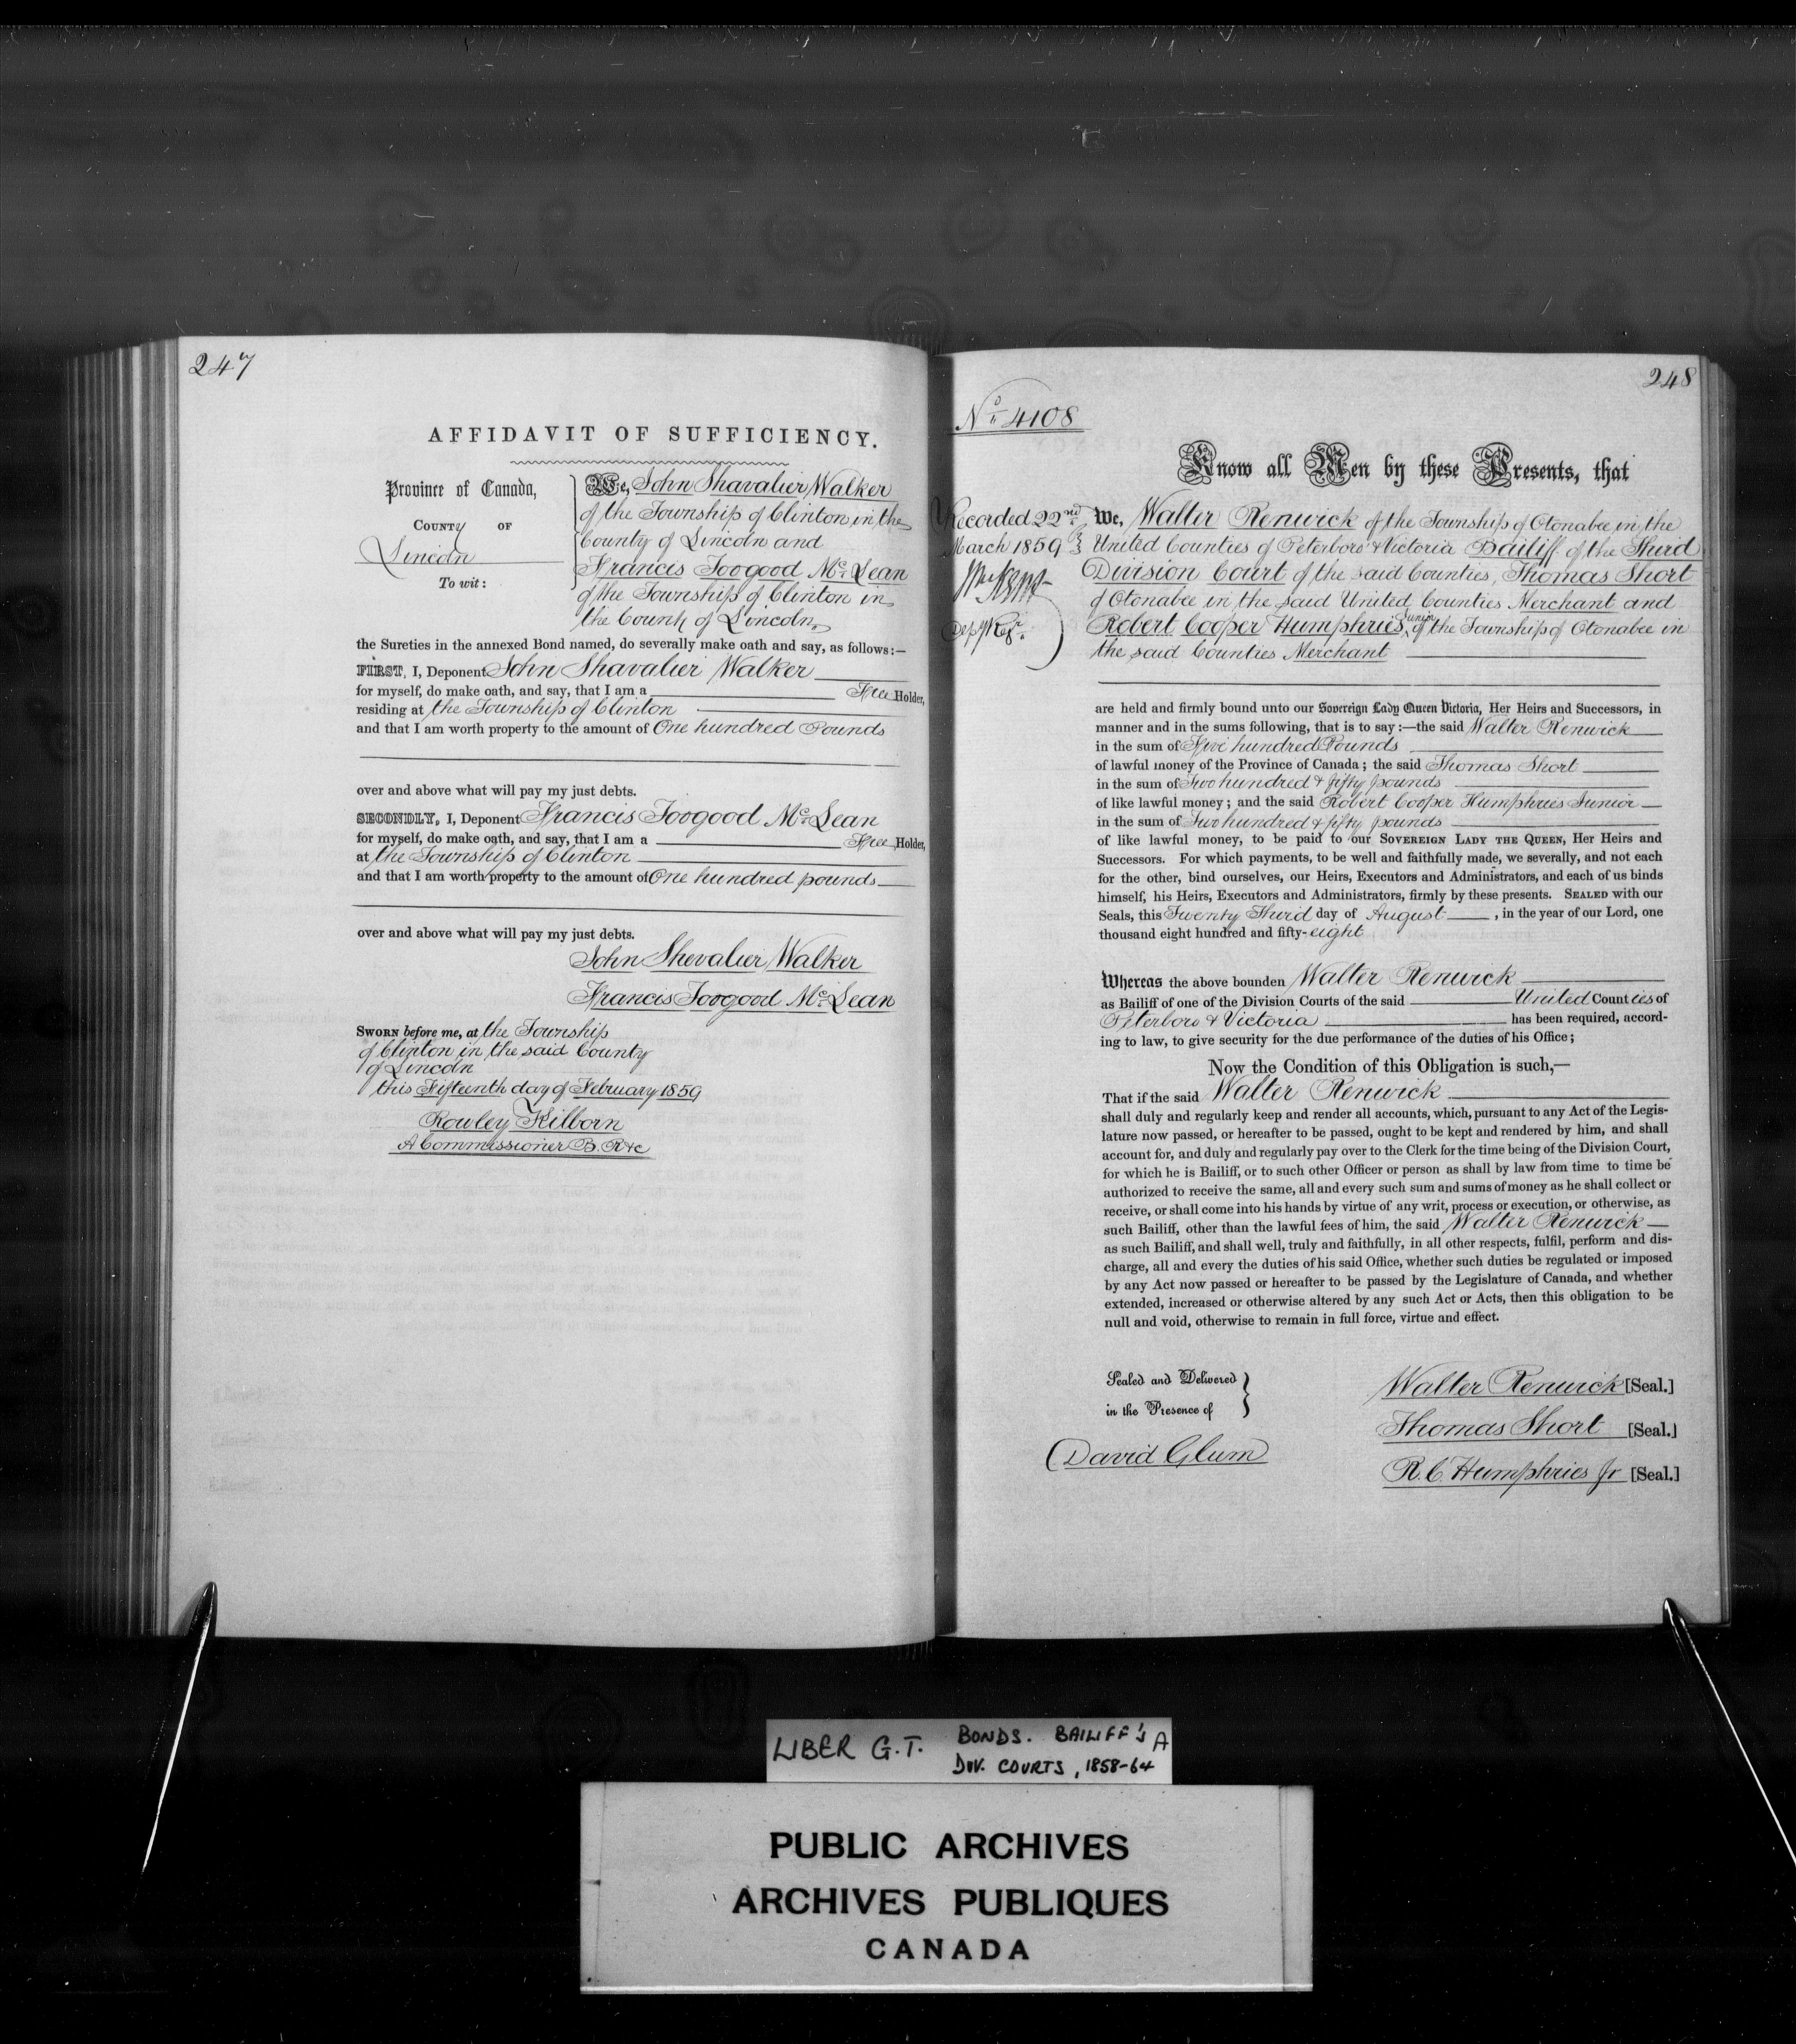 247
AFFIDAVIT OF SUFFICIENCY.
Province of Canada,
COUNTY OF
Lincoln
To wit:
We, John Shavalier Walker
of the Township of Clinton in the
County of Lincoln and
Francis Toogood Mc. Lean
of the Township of Clinton in
the County of Lincoln
the Sureties in the annexed Bond named, do severally make oath and say, as follows:—
FIRST, I, Deponent John Shavalier Walker
for myself, do make oath, and say, that I am a Free Holder,
residing at the Township of Clinton
and that I am worth property to the amount of One hundred Pounds
over and above what will pay my just debts.
SECONDLY, I, Deponent Francis Toogood Mc. Lean
for myself, do make oath, and say, that I am a Free Holder,
at the Township of Clinton
and that I am worth property to the amount of One hundred pounds
over and above what will pay my just debts.
John Shevalier Walker
Francis Toogood Mc. Lean
SWORN before me, at the Township
of Clinton in the said County
of Lincoln
this Fifteenth day of February 1859
Rowley Kilborn
A Commissioner B. R &c
248
No. 4108
Know all Men by these Presents, that
Recorded 22nd
March 1859
Depy Regr.
We, Walter Renwick of the Township of Otonabee in the
United Counties of Peterboro' & Victoria Bailiff of the Third
Division Court of the said Counties, Thomas Short
of Otonabee in the said United Counties Merchant and
Robert Cooper Humphries Junior of the Township of Otonabee in
the said Counties Merchant
are held and firmly bound unto our Sovereign Lady Queen Victoria, Her Heirs and Successors, in
manner and in the sums following, that is to say:—the said Walter Renwick
in the sum of Five hundred Pounds
of lawful money of the Province of Canada; the said Thomas Short
in the sum of Two hundred & fifty pounds
of like lawful money; and the said Robert Cooper Humphries Junior
in the sum of Two hundred & fifty pounds
of like lawful money, to be paid to our SOVEREIGN LADY THE QUEEN, Her Heirs and
Successors. For which payments, to be well and faithfully made, we severally, and not each
for the other, bind ourselves, our Heirs, Executors and Administrators, and each of us binds
himself, his Heirs, Executors and Administrators, firmly by these presents. SEALED with our
Seals, this Twenty Third day of August , in the year of our Lord, one
thousand eight hundred and fifty-eight
Whereas the above bounden Walter Renwick
as Bailiff of one of the Division Courts of the said United Counties of
Peterboro & Victoria has been required, accord-
ing to law, to give security for the due performance of the duties of his Office;
Now the Condition of this Obligation is such,—
That if the said Walter Renwick
shall duly and regularly keep and render all accounts, which, pursuant to any Act of the Legis-
lature now passed, or hereafter to be passed, ought to be kept and rendered by him, and shall
account for, and duly and regularly pay over to the Clerk for the time being of the Division Court,
for which he is Bailiff, or to such other Officer or person as shall by law from time to time be
authorized to receive the same, all and every such sum and sums of money as he shall collect or
receive, or shall come into his hands by virtue of any writ, process or execution, or otherwise, as
such Bailiff, other than the lawful fees of him, the said Walter Renwick
as such Bailiff, and shall well, truly and faithfully, in all other respects, fulfil, perform and dis-
charge, all and every the duties of his said Office, whether such duties be regulated or imposed
by any Act now passed or hereafter to be passed by the Legislature of Canada, and whether
extended, increased or otherwise altered by any such Act or Acts, then this obligation to be
null and void, otherwise to remain in full force, virtue and effect.
Sealed and Delivered
in the Presence of
David Glum
Walter Renwick [Seal.]
Thomas Short [Seal.]
R. C Humphries Jr [Seal.]
LIBER G.T. BONDS. BAILIFF'S A
DIV. COURTS, 1858-64
PUBLIC ARCHIVES
ARCHIVES PUBLIQUES
CANADA